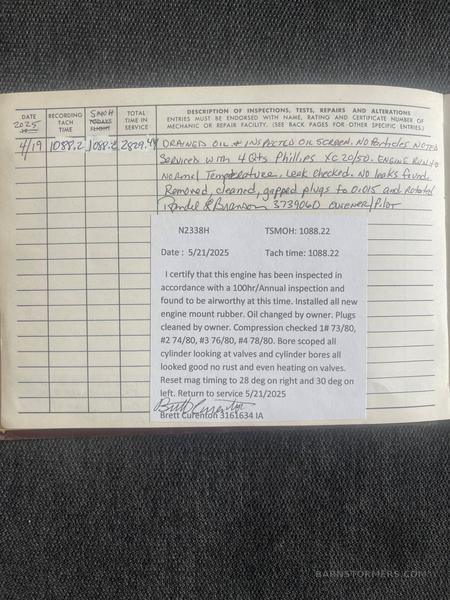 DATE
2025
RECORDING
TACH
TIME
SMOH
TODAYS
FLIGHT
TOTAL
TIME IN
SERVICE
DESCRIPTION OF INSPECTIONS, TESTS, REPAIRS AND ALTERATIONS
ENTRIES MUST BE ENDORSED WITH NAME, RATING AND CERTIFICATE NUMBER OF
MECHANIC OR REPAIR FACILITY. (SEE BACK PAGES FOR OTHER SPECIFIC ENTRIES.)
4/19 1088.2 1088.2 2829.44 DRAINED OIL & INSPECTED OIL SCREEN. NO Particles NOTED
Serviced with 4 Qts Phillips XC 20/50. ENGINE RUN to
Normal Temperature. Leak checked. No leaks found.
Removed, cleaned, gapped plugs to 0.015 and Rotated
Branson 3739060 OWNER/PILOT
N2338H TSMOH: 1088.22
Date : 5/21/2025 Tach time: 1088.22
I certify that this engine has been inspected in
accordance with a 100hr/Annual inspection and
found to be airworthy at this time. Installed all new
engine mount rubber. Oil changed by owner. Plugs
cleaned by owner. Compression checked 1# 73/80,
#2 74/80, #3 76/80, #4 78/80. Bore scoped all
cylinder looking at valves and cylinder bores all
looked good no rust and even heating on valves.
Reset mag timing to 28 deg on right and 30 deg on
left. Return to service 5/21/2025
Brett Curenton
Brett Curenton 3161634 IA
BARNSTORMERS.COM